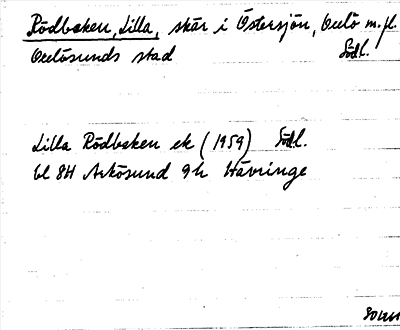 Rödbaken, Lilla, skär i Östersjön, Oxelö m.fl.
Oxelösunds stad Södl.
Lilla Rödbaken ek (1959) Södl.
bl 8H Arkösund 9h Hävringe